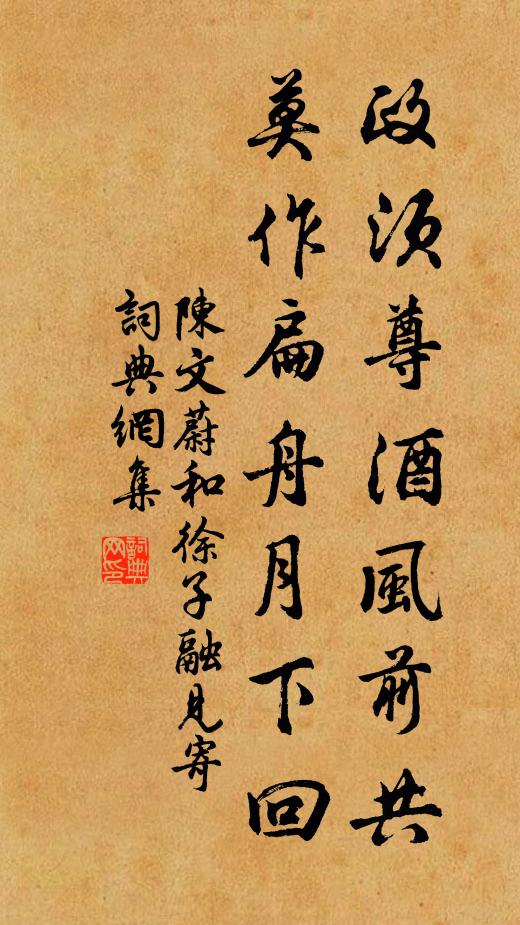 政須尊酒風前共
莫作扁舟月下回
陳文蔚和徐子融見寄
詞典網集
詞典
网印